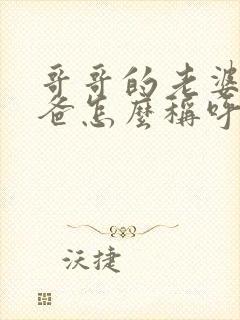 哥哥的老婆
爸怎麼稱呼
沃捷